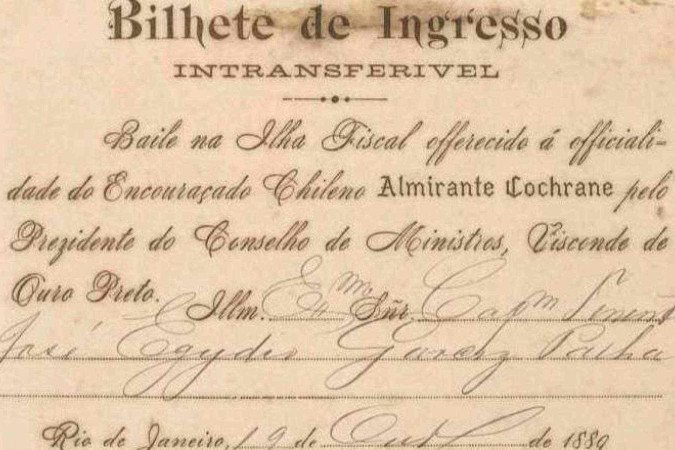 Bilhete de Ingresso
INTRANSFERIVEL
Baile na Ilha Fiscal offerecido á officiali-
dade do Encouraçado Chileno Almirante Cochrane pelo
Prezidente do Conselho de Ministros, Visconde de
Ouro Preto. Illm. Exmo Sñr. Capm Tenent
José Egydio Garcez Palha
Rio de Janeiro, 19 de Outº de 1889